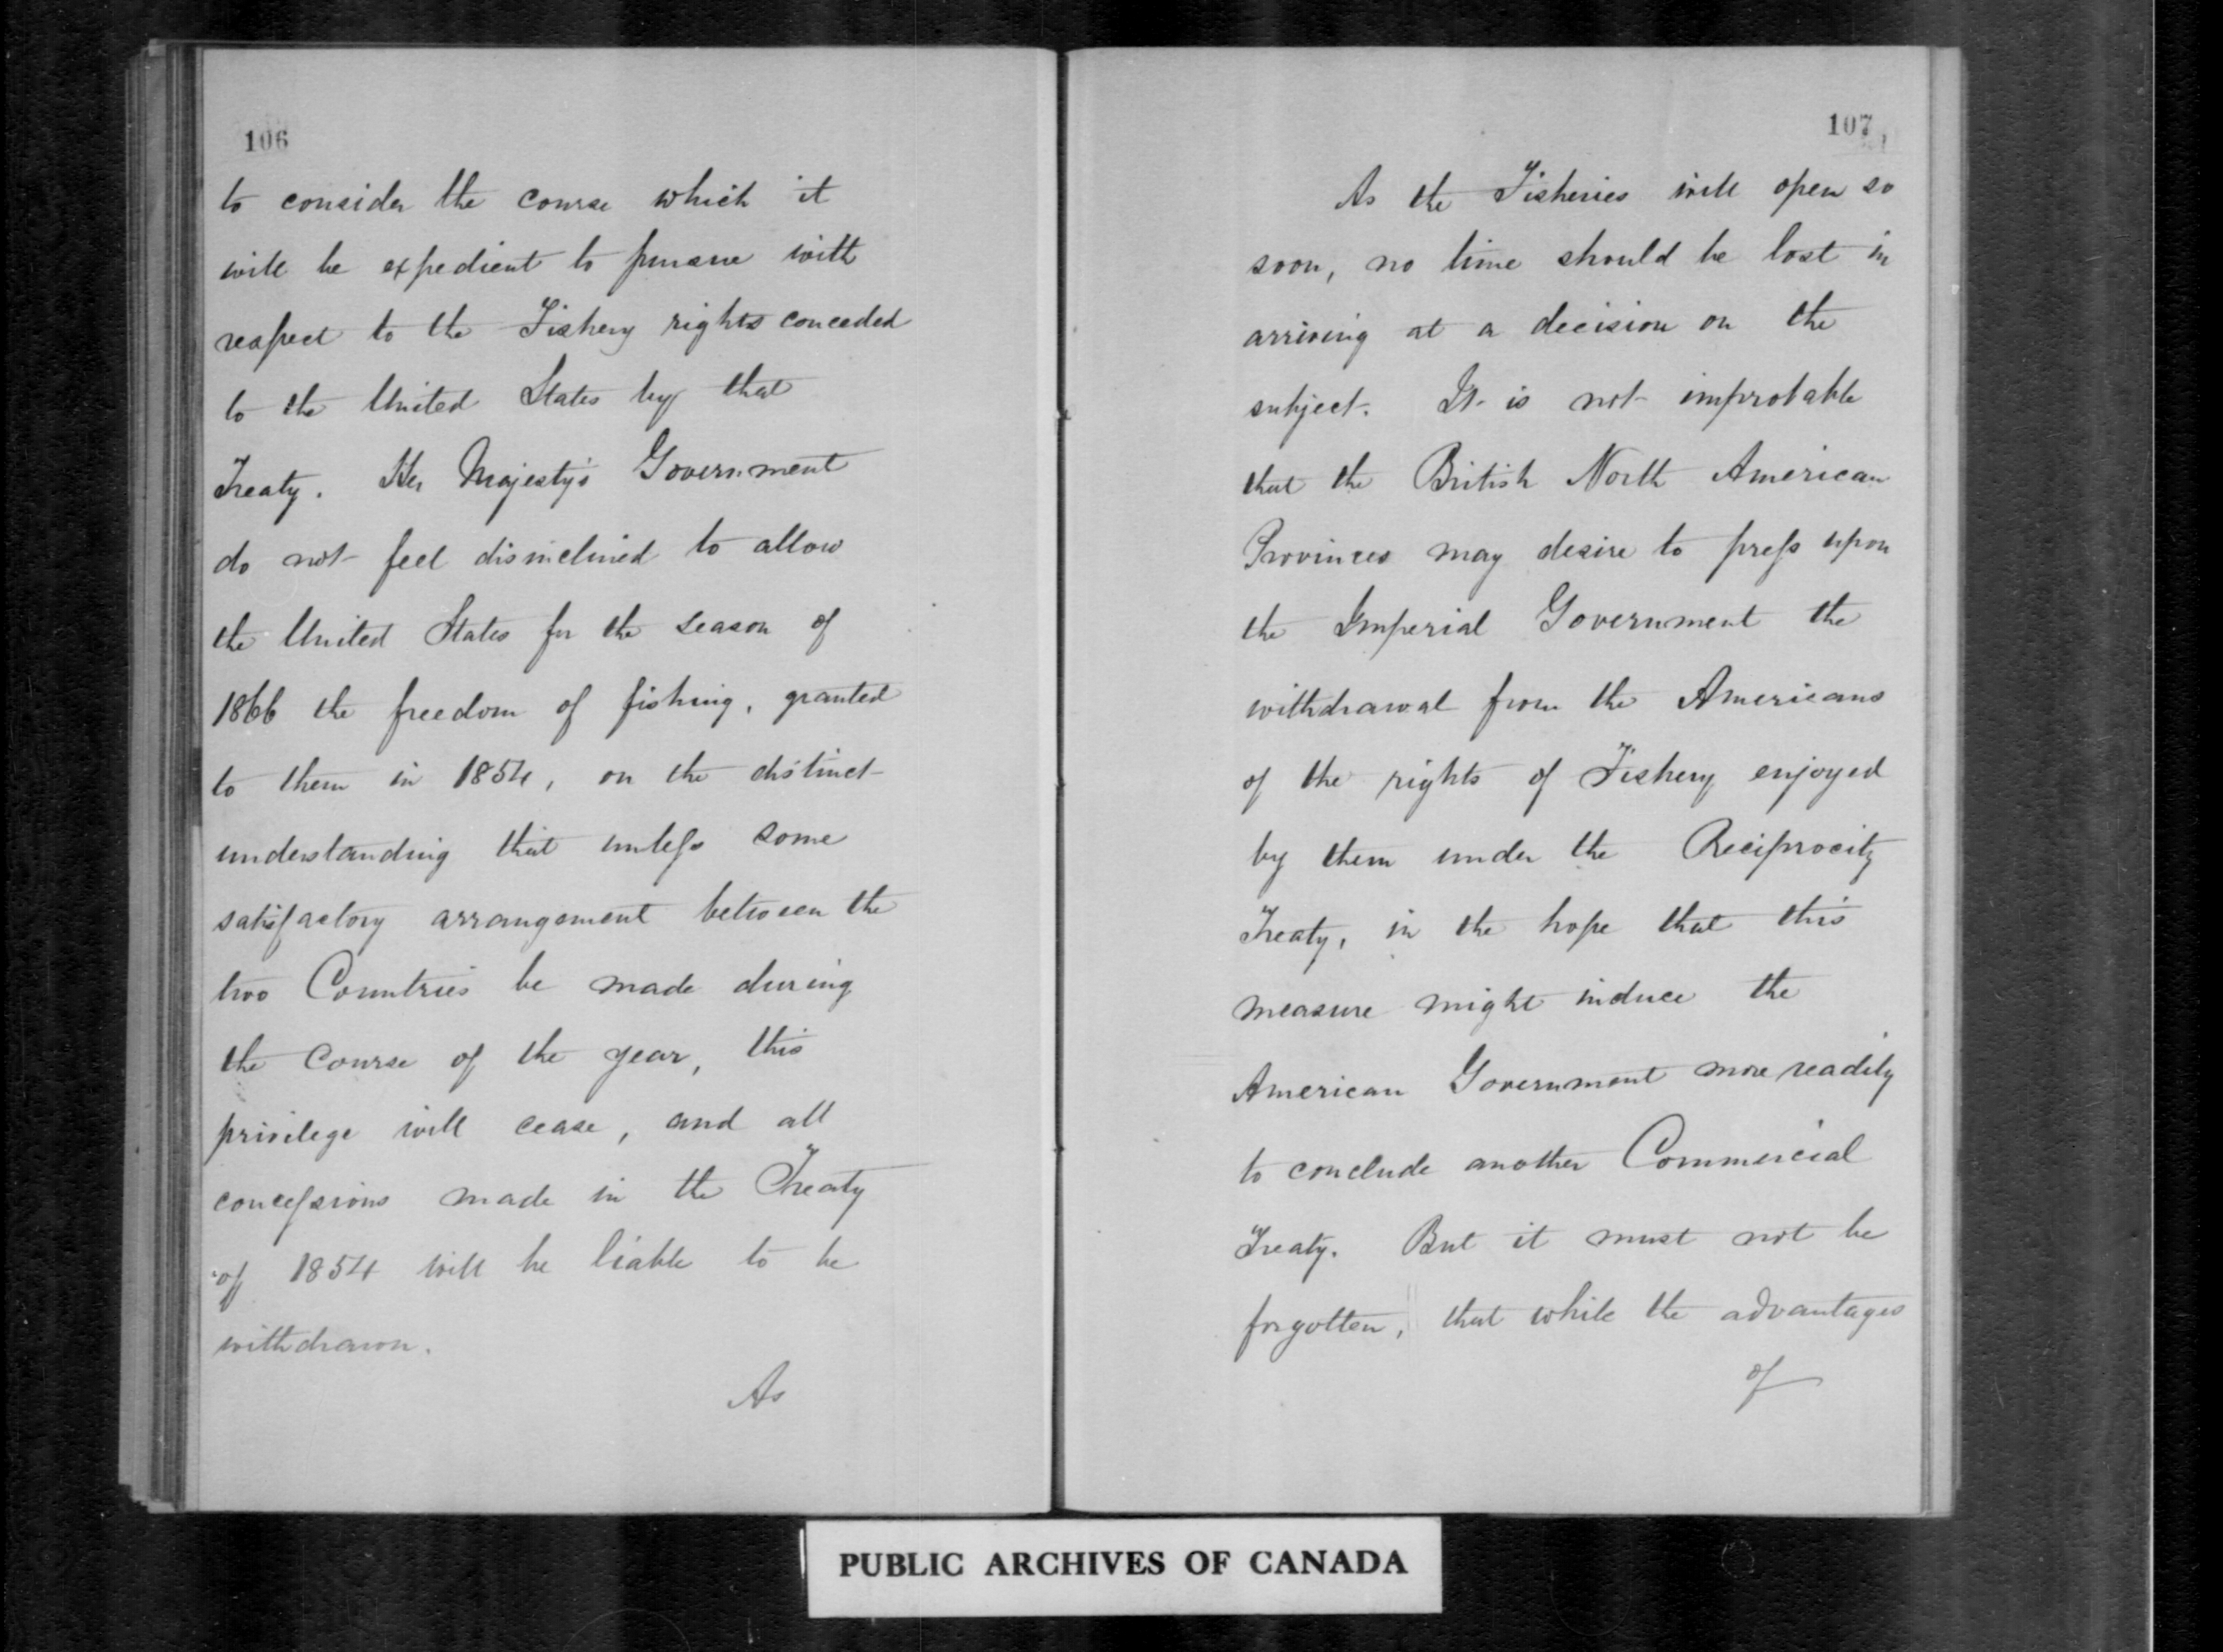 106
to consider the course which it
will be expedient to pursue with
respect to the Fishery rights conceded
to the United States by that
Treaty. Her Majesty's Government
do not feel disinclined to allow
the United States for the season of
1866 the freedom of fishing, granted
to them in 1854, on the distinct
understanding that unless some
satisfactory arrangement between the
two Countries be made during
the Course of the year, this
privilege will cease, and all
concessions made in the Treaty
of 1854 will be liable to be
withdrawn.
As
107
As the Fisheries will open so
soon, no time should be lost in
arriving at a decision on the
subject. It is not improbable
that the British North American
Provinces may desire to press upon
the Imperial Government the
withdrawal from the Americans
of the rights of Fishery enjoyed
by them under the Reciprocity
Treaty, in the hope that this
measure might induce the
American Government more readily
to conclude another Commercial
Treaty. But it must not be
forgotten, that while the advantages
of
PUBLIC ARCHIVES OF CANADA